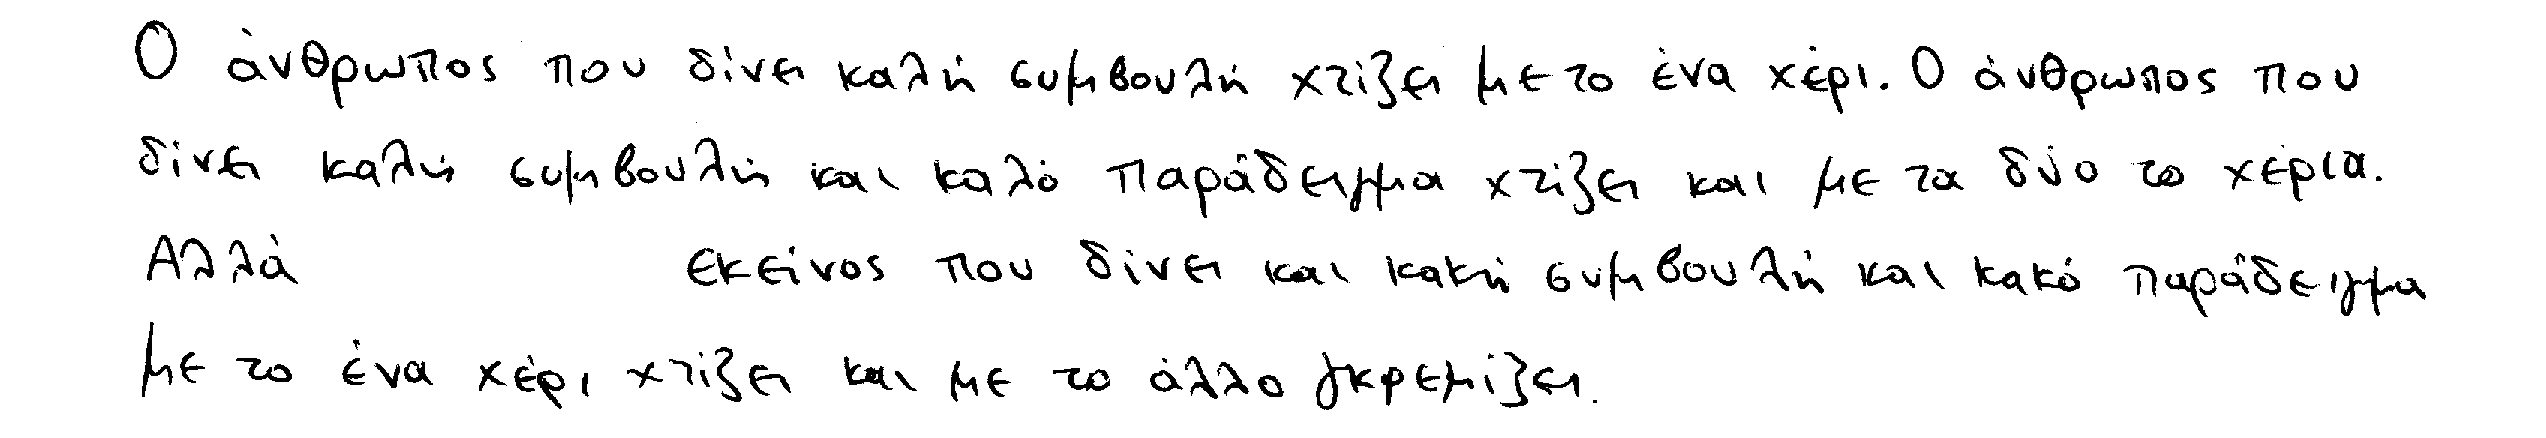 Ο άνθρωπος που δίνει καλή συμβουλή χτίζει με το ένα χέρι. Ο άνθρωπος που
δίνει καλή συμβουλή και καλό παράδειγμα χτίζει και με τα δύο το χέρια.
Αλλά εκείνος που δίνει και κακή συμβουλή και κακό παράδειγμα
με το ένα χέρι χτίζει και με το άλλο γκρεμίζει.